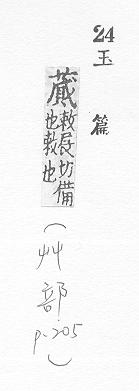 24
玉篇
蕆敕展切備
也敕也
(艸部 p.205)